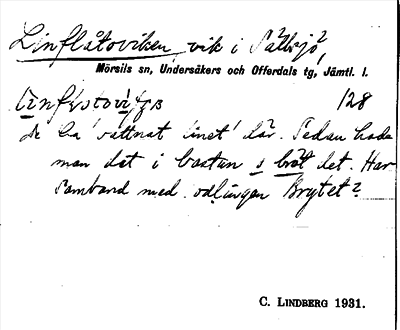 Linflåtoviken, vik i Sällsjö,
Mörsils sn, Undersåkers och Offerdals tg, Jämtl. l.
128
de ha 'vattnat linet' där. Sedan hade
man det i bastun o bröt det. Har
samband med odlingen Brytet?
C. LINDBERG 1931.